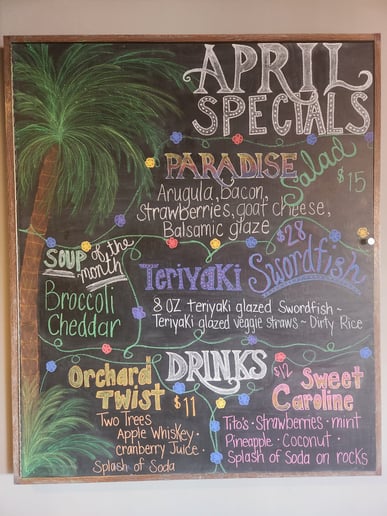 APRIL
SPECIALS
PARADISE Salad
$15
Arugula, Bacon,
Strawberries, goat cheese,
Balsamic glaze
Soup of the month
Broccoli
Cheddar
$28
Teriyaki Swordfish
8 oz teriyaki glazed Swordfish ~
Teriyaki glazed veggie straws ~ Dirty Rice
DRINKS
Orchard
Twist $11
Two Trees
Apple Whiskey ·
cranberry Juice ·
Splash of Soda
$12 Sweet
Caroline
Tito's · Strawberries · mint
Pineapple · Coconut ·
Splash of Soda on rocks